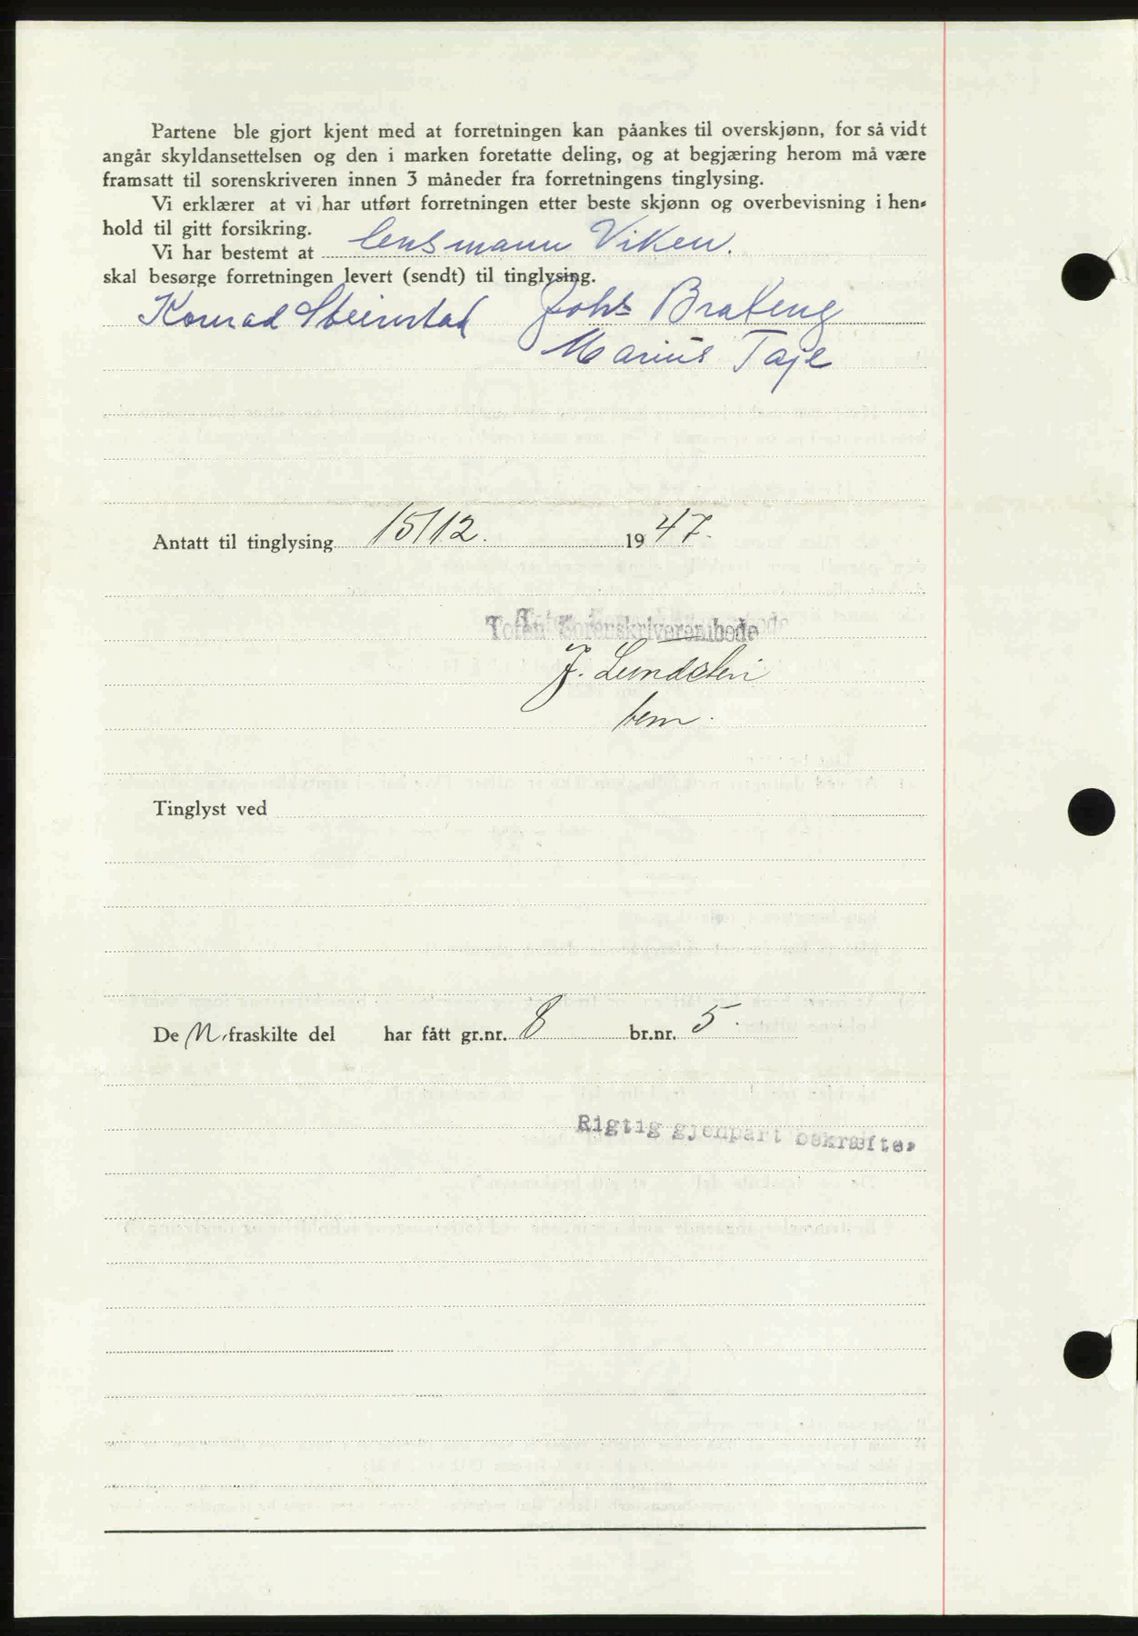 Partene ble gjort kjent med at forretningen kan påankes til overskjønn, for så vidt
angår skyldansettelsen og den i marken foretatte deling, og at begjæring herom må være
framsatt til sorenskriveren innen 3 måneder fra forretningens tinglysing.
Vi erklærer at vi har utført forretningen etter beste skjønn og overbevisning i hen-
hold til gitt forsikring.
Vi har bestemt at lensmann Viken.
skal besørge forretningen levert (sendt) til tinglysing.
Konrad Steinstad Johs Brateng
Marius Taje
Antatt til tinglysing 15/12. 1947.
Toten Sorenskriverembede
J. Lundsten
bem.
Tinglyst ved
De N. fraskilte del har fått gr.nr. 8 br.nr. 5.
Rigtig gjenpart bekræftes